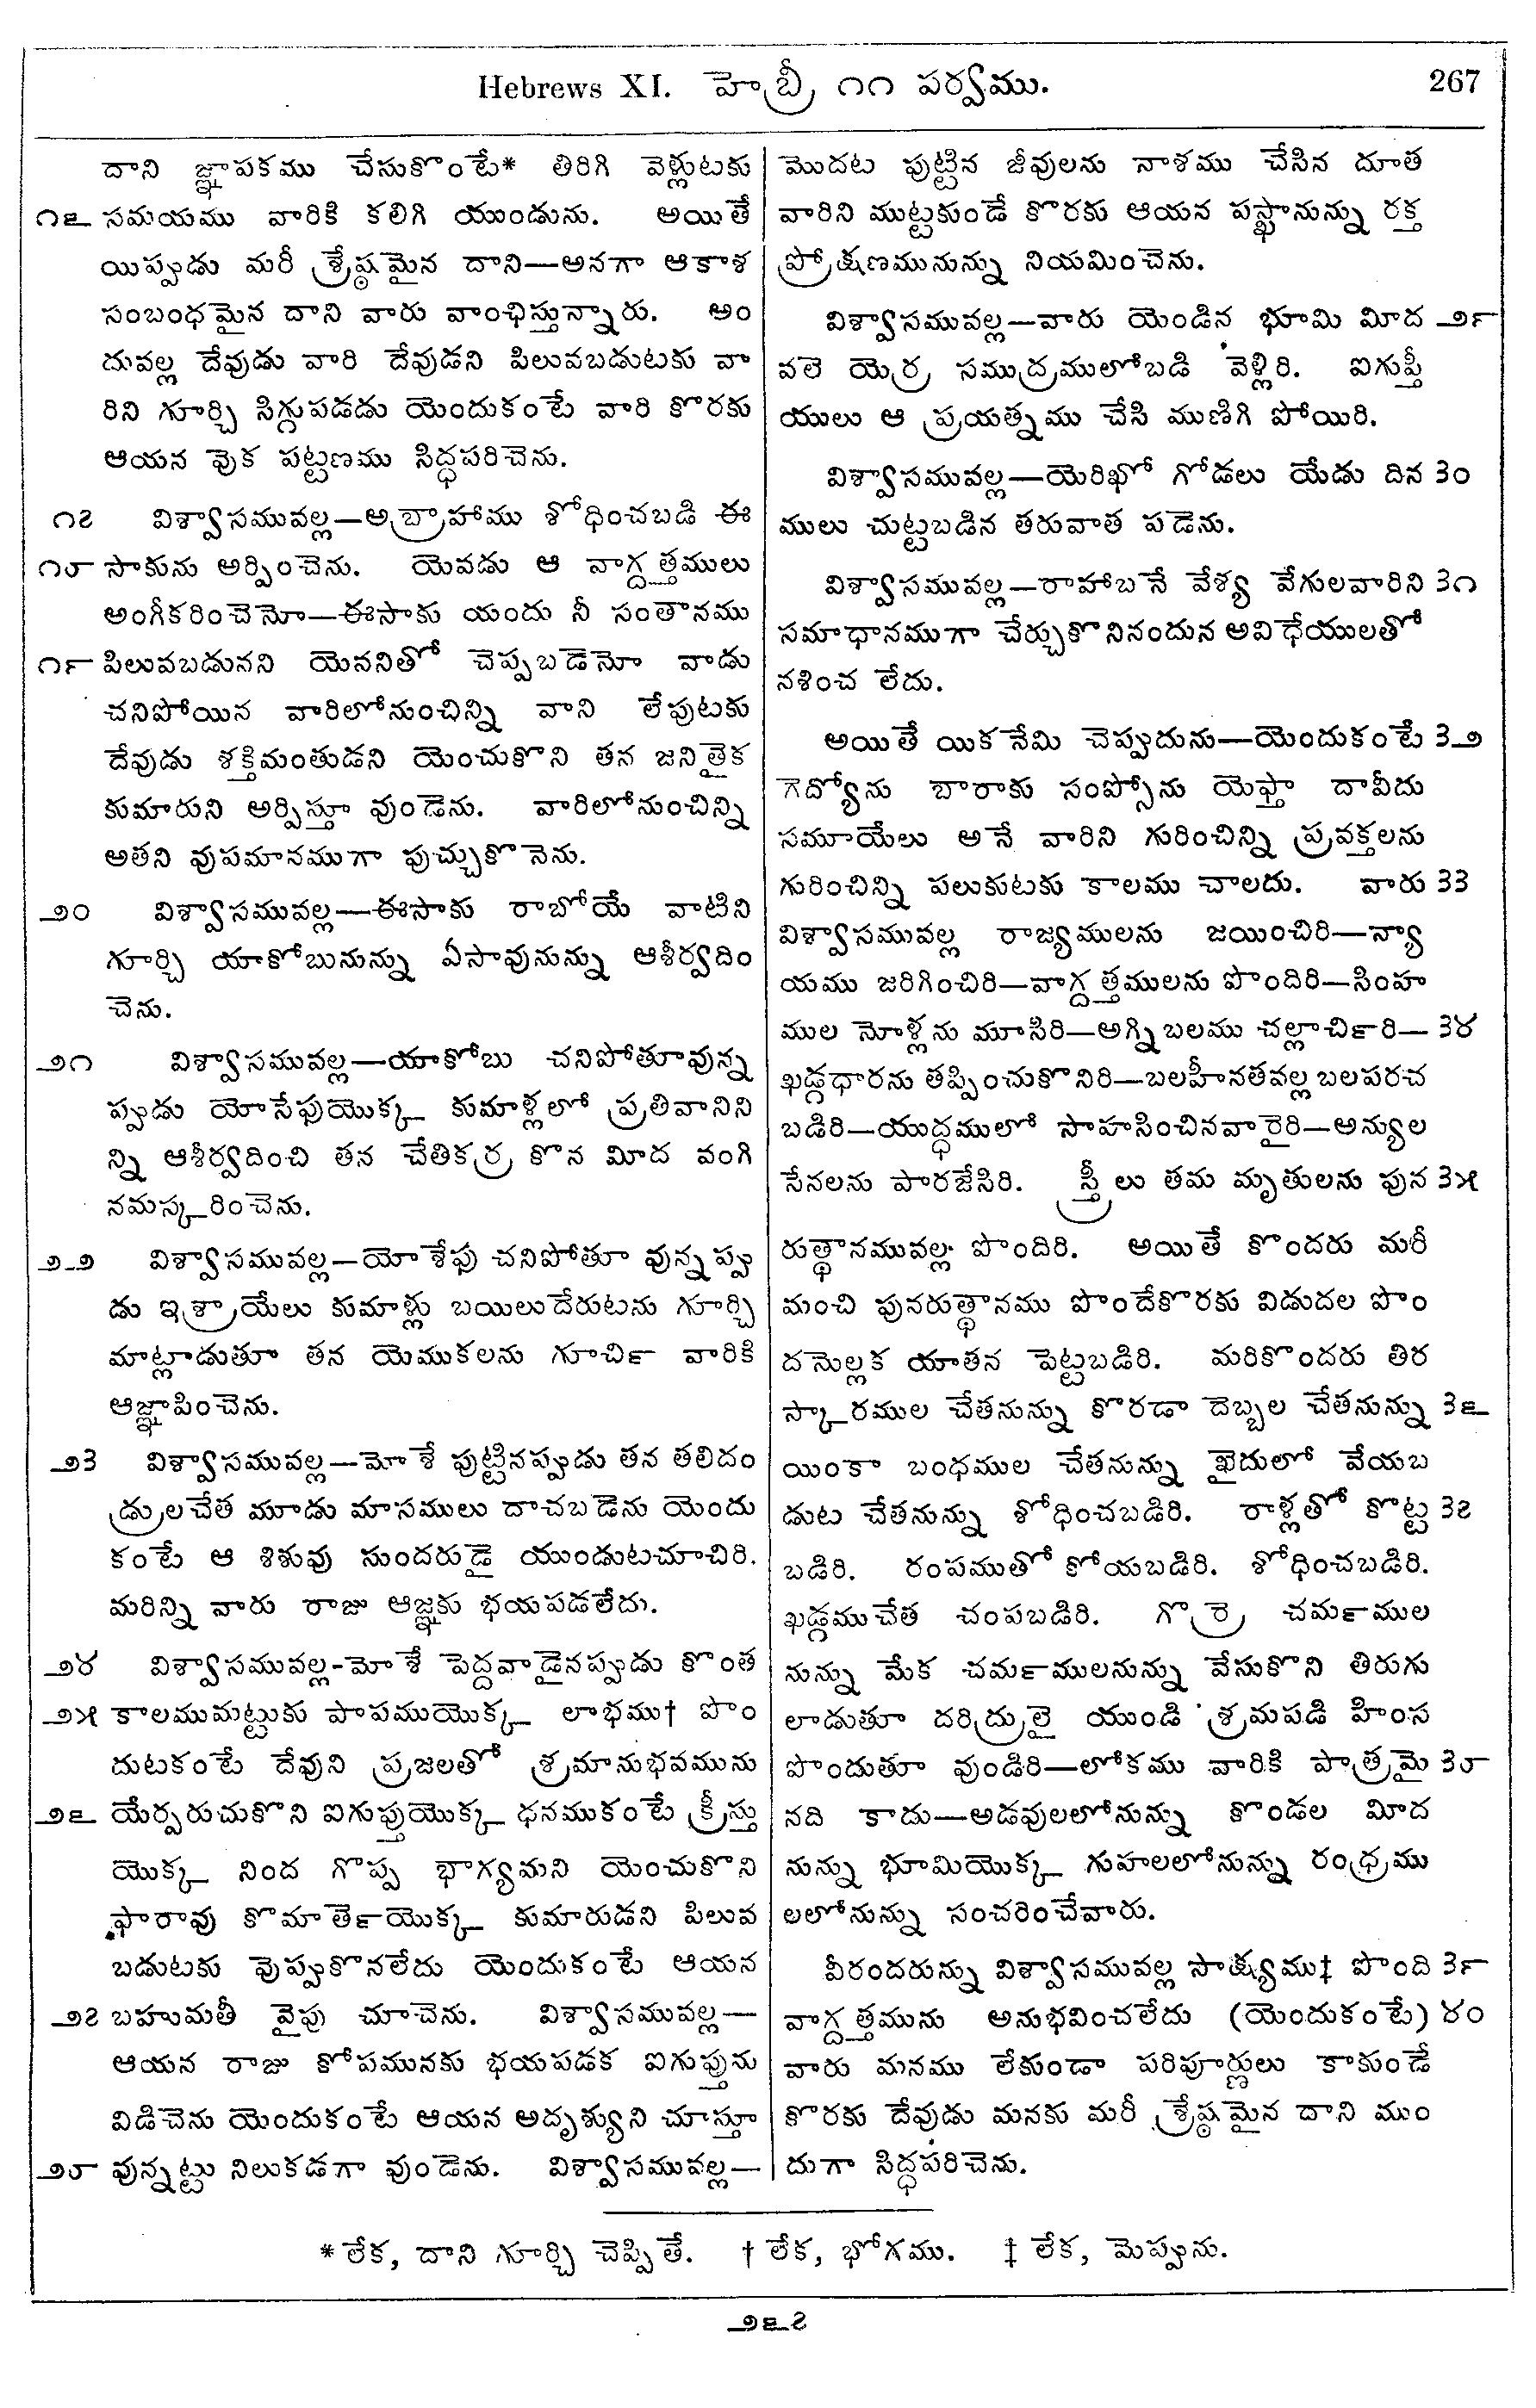 Hebrews XI. హెబ్రీ ౧౧ పర్వము. 267
దాని జ్ఞాపకము చేసుకొంటే* తిరిగి వెళ్లుటకు
౧౬ సమయము వారికి కలిగి యుండును. అయితే
యిప్పుడు మరీ శ్రేష్ఠమైన దాని—అనగా ఆకాశ
సంబంధమైన దాని వారు వాంఛిస్తున్నారు. అం
దువల్ల దేవుడు వారి దేవుడని పిలువబడుటకు వా
రిని గూర్చి సిగ్గుపడడు యెందుకంటే వారి కొరకు
ఆయన వొక పట్టణము సిద్ధపరిచెను.
౧౭ విశ్వాసమువల్ల—అబ్రాహాము శోధించబడి ఈ
౧౮ సాకును అర్పించెను. యెవడు ఆ వాగ్దత్తములు
అంగీకరించెనో—ఈసాకు యందు నీ సంతానము
౧౯ పిలువబడునని యెననితో చెప్పబడెనో వాడు
చనిపోయిన వారిలోనుంచిన్ని వాని లేపుటకు
దేవుడు శక్తిమంతుడని యెంచుకొని తన జనితైక
కుమారుని అర్పిస్తూ వుండెను. వారిలోనుంచిన్ని
అతని వుపమానముగా పుచ్చుకొనెను.
౨౦ విశ్వాసమువల్ల—ఈసాకు రాబోయే వాటిని
గూర్చి యాకోబునున్ను ఏసావునున్ను ఆశీర్వదిం
చెను.
౨౧ విశ్వాసమువల్ల—యాకోబు చనిపోతూవున్న
ప్పుడు యోసేఫుయొక్క కుమాళ్లలో ప్రతివానిని
న్ని ఆశీర్వదించి తన చేతికర్ర కొన మీద వంగి
నమస్కరించెను.
౨౨ విశ్వాసమువల్ల—యోశేఫు చనిపోతూ వున్నప్పు
డు ఇశ్రాయేలు కుమాళ్లు బయిలుదేరుటను గూర్చి
మాట్లాడుతూ తన యెముకలను గూచి౯ వారికి
ఆజ్ఞాపించెను.
౨౩ విశ్వాసమువల్ల—మోశే పుట్టినప్పుడు తన తలిదం
డ్రులచేత మూడు మాసములు దాచబడెను యెందు
కంటే ఆ శిశువు సుందరుడై యుండుటచూచిరి.
మరిన్ని వారు రాజు ఆజ్ఞకు భయపడలేదు.
౨౪ విశ్వాసమువల్ల-మోశే పెద్దవాడైనప్పుడు కొంత
౨౫ కాలముమట్టుకు పాపముయొక్క లాభము† పొం
దుటకంటే దేవుని ప్రజలతో శ్రమానుభవమును
౨౬ యేర్పరుచుకొని ఐగుప్తుయొక్క ధనముకంటే క్రీస్తు
యొక్క నింద గొప్ప భాగ్యమని యెంచుకొని
ఫారావు కొమాతె౯యొక్క కుమారుడని పిలువ
బడుటకు వొప్పుకొనలేదు యెందుకంటే ఆయన
౨౭ బహుమతీ వైపు చూచెను. విశ్వాసమువల్ల—
ఆయన రాజు కోపమునకు భయపడక ఐగుప్తును
విడిచెను యెందుకంటే ఆయన అదృశ్యుని చూస్తూ
౨౮ వున్నట్టు నిలుకడగా వుండెను. విశ్వాసమువల్ల—
మొదట పుట్టిన జీవులను నాశము చేసిన దూత
వారిని ముట్టకుండే కొరకు ఆయన పస్ఖానున్ను రక్త
ప్రోక్షణమునున్ను నియమించెను.
విశ్వాసమువల్ల—వారు యెండిన భూమి మీద ౨౯
వలె యెర్ర సముద్రములోబడి వెళ్లిరి. ఐగుప్తీ
యులు ఆ ప్రయత్నము చేసి ముణిగి పోయిరి.
విశ్వాసమువల్ల—యెరిఖో గోడలు యేడు దిన ౩౦
ములు చుట్టబడిన తరువాత పడెను.
విశ్వాసమువల్ల—రాహాబనే వేశ్య వేగులవారిని ౩౧
సమాధానముగా చేర్చుకొనినందున అవిధేయులతో
నశించ లేదు.
అయితే యికనేమి చెప్పుదును—యెందుకంటే ౩౨
గెద్యోను బారాకు సంప్సోను యెఫ్తా దావీదు
సమూయేలు అనే వారిని గురించిన్ని ప్రవక్తలను
గురించిన్ని పలుకుటకు కాలము చాలదు. వారు ౩౩
విశ్వాసమువల్ల రాజ్యములను జయించిరి—న్యా
యము జరిగించిరి—వాగ్దత్తములను పొందిరి—సింహ
ముల నోళ్లను మూసిరి—అగ్నిబలము చల్లాచి౯రి— ౩౪
ఖడ్గధారను తప్పించుకొనిరి—బలహీనతవల్ల బలపరచ
బడిరి—యుద్ధములో సాహసించినవారైరి—అన్యుల
సేనలను పారజేసిరి. స్త్రీలు తమ మృతులను పున ౩౫
రుత్థానమువల్ల పొందిరి. అయితే కొందరు మరీ
మంచి పునరుత్థానము పొందేకొరకు విడుదల పొం
దనొల్లక యాతన పెట్టబడిరి. మరికొందరు తిర
స్కారముల చేతనున్ను కొరడా దెబ్బల చేతనున్ను ౩౬
యింకా బంధముల చేతనున్ను ఖైదులో వేయబ
డుట చేతనున్ను శోధించబడిరి. రాళ్లతో కొట్ట ౩౭
బడిరి. రంపముతో కోయబడిరి. శోధించబడిరి.
ఖడ్గముచేత చంపబడిరి. గొర్రె చమ౯ముల
నున్ను మేక చమ౯ములనున్ను వేసుకొని తిరుగు
లాడుతూ దరిద్రులై యుండి శ్రమపడి హింస
పొందుతూ వుండిరి—లోకము వారికి పాత్రమై ౩౮
నది కాదు—అడవులలోనున్ను కొండల మీద
నున్ను భూమియొక్క గుహలలోనున్ను రంధ్రము
లలోనున్ను సంచరించేవారు.
వీరందరున్ను విశ్వాసమువల్ల సాక్ష్యము‡ పొంది ౩౯
వాగ్దత్తమును అనుభవించలేదు (యెందుకంటే) ౪౦
వారు మనము లేకుండా పరిపూర్ణులు కాకుండే
కొరకు దేవుడు మనకు మరీ శ్రేష్ఠమైన దాని ముం
దుగా సిద్ధపరిచెను.
*లేక, దాని గూర్చి చెప్పితే. † లేక, భోగము. ‡ లేక, మెప్పును.
౨౬౭